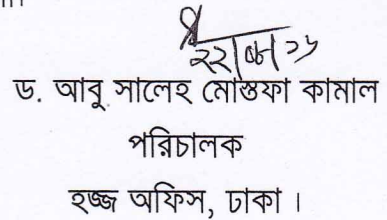 ড. আবু সালেহ মোস্তফা কামাল
পরিচালক
হজ্জ অফিস, ঢাকা।